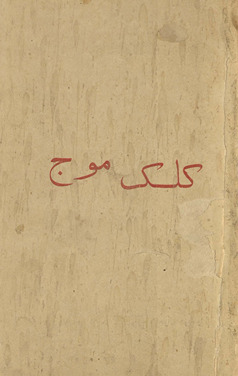 کلک موج